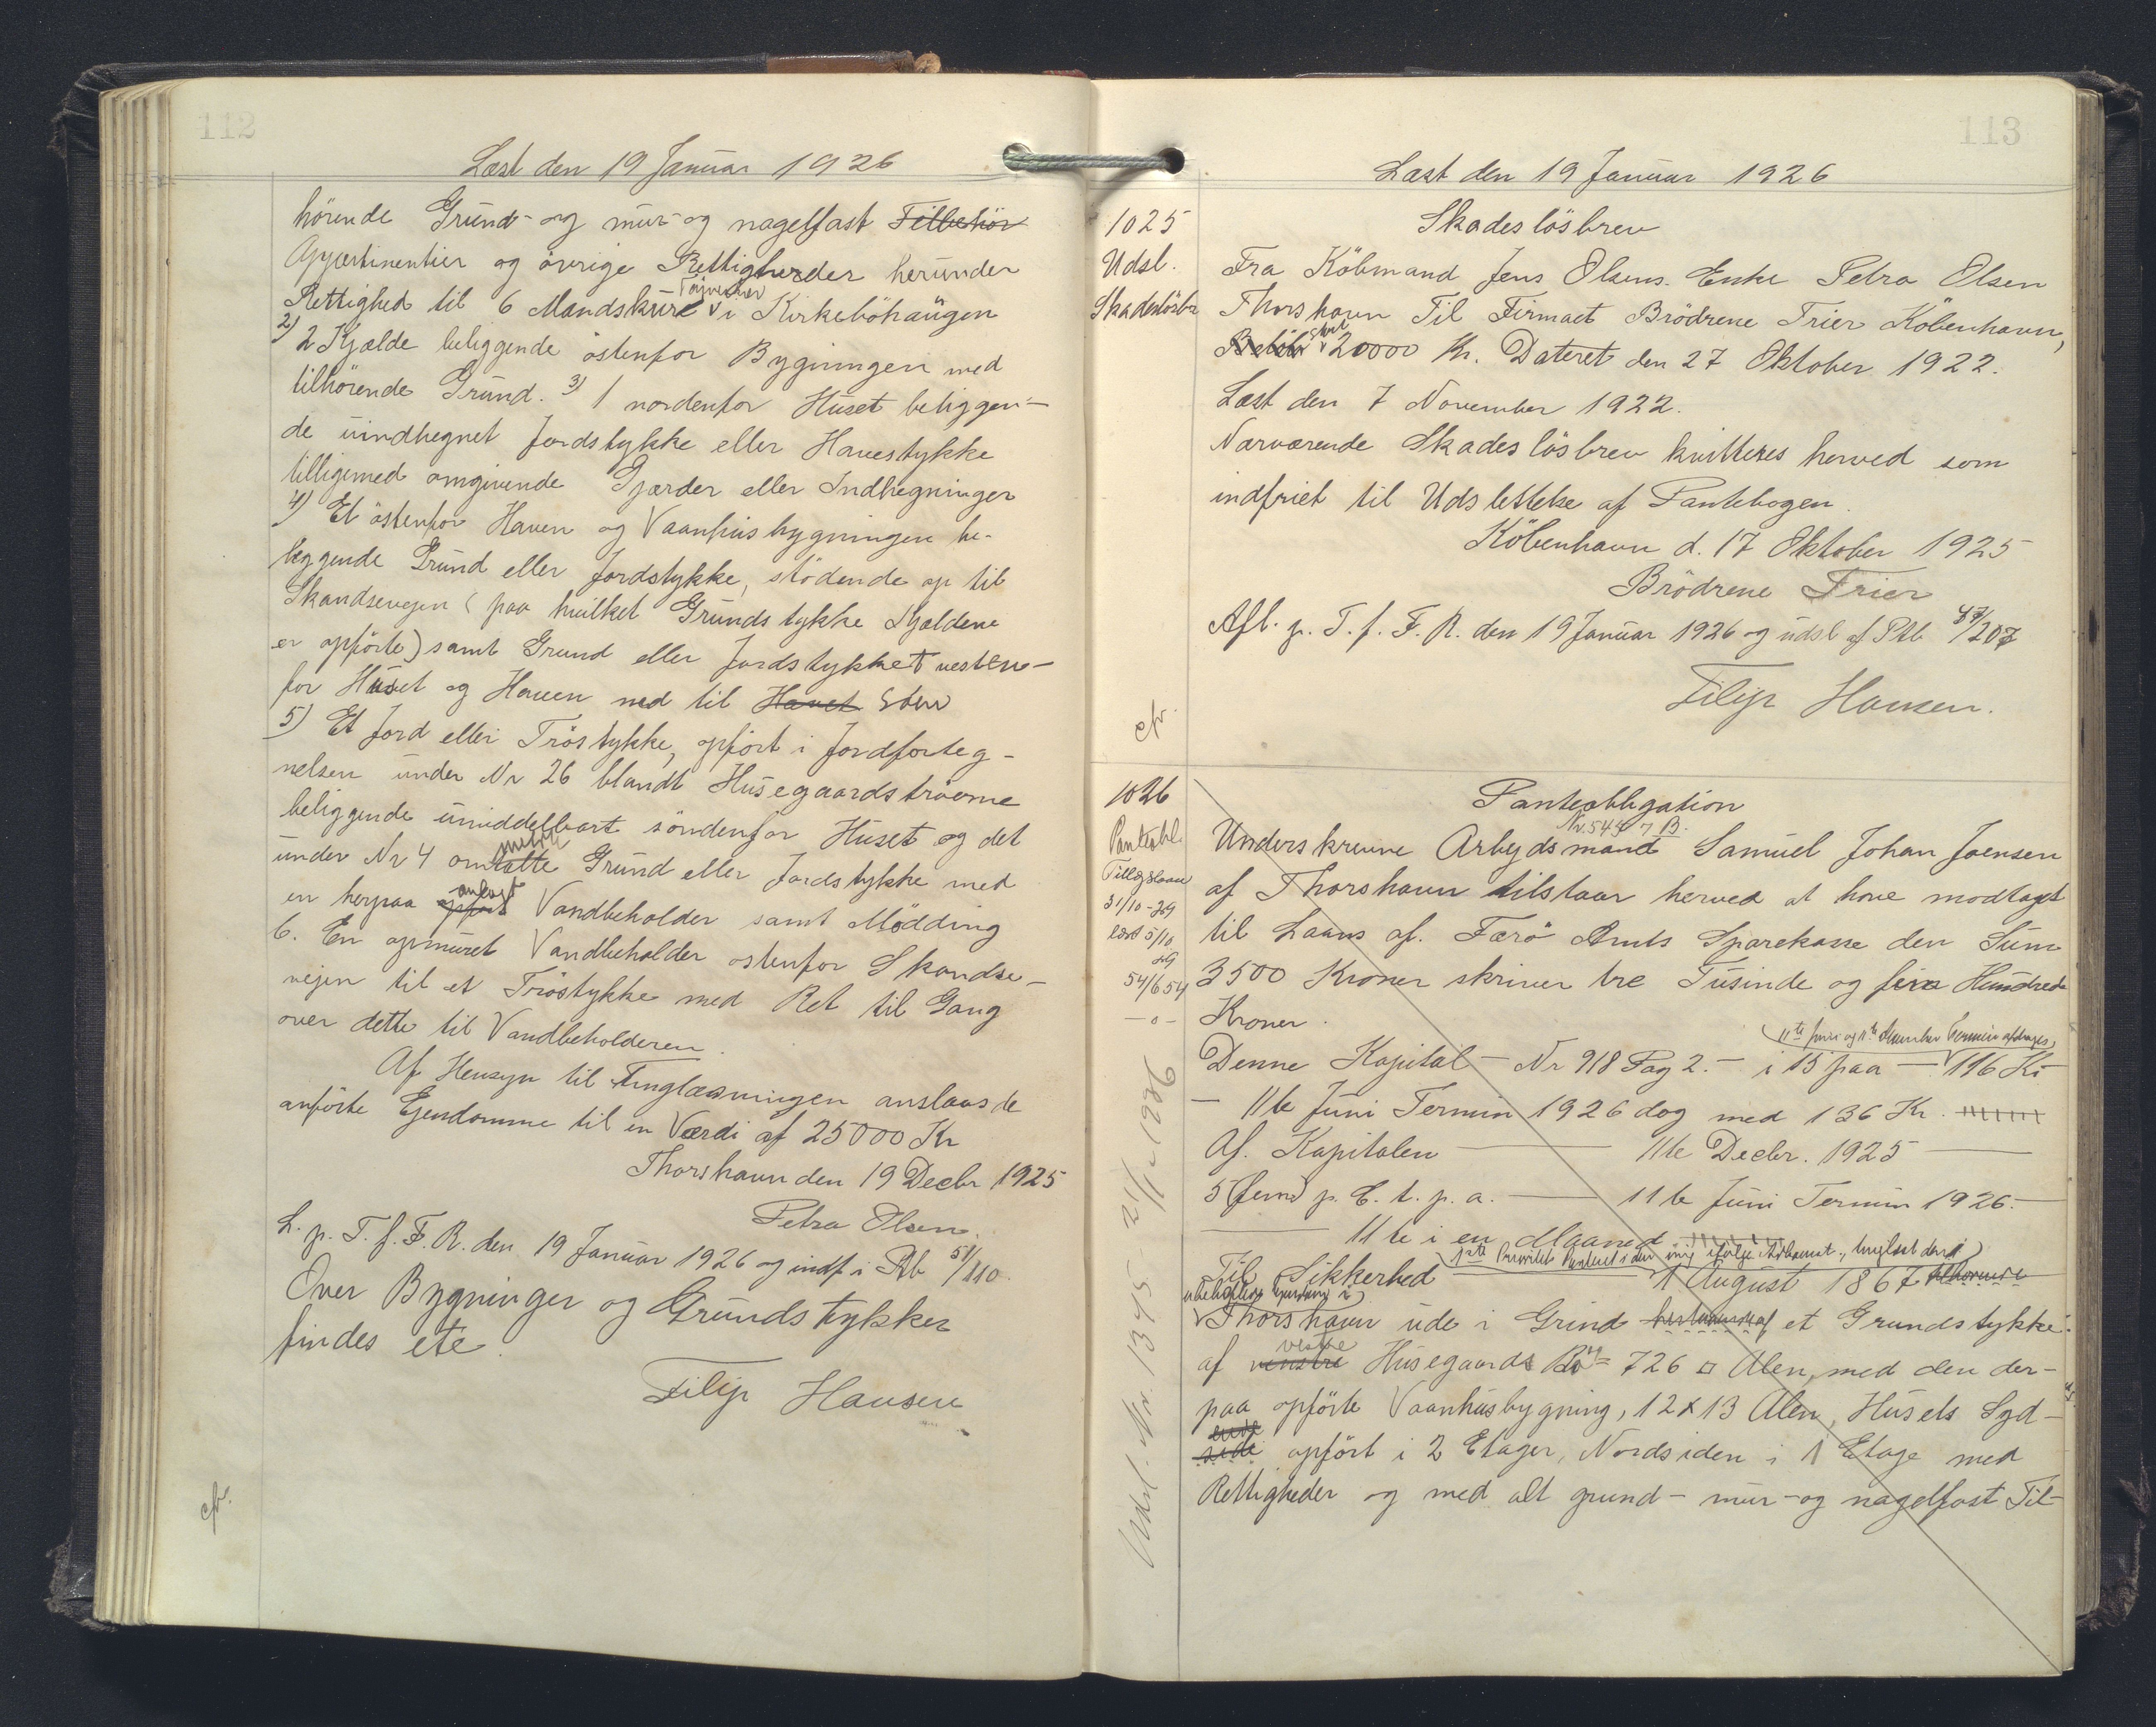 112
Læst den 19 Januar 1926
hörende Grund- og mur- og nagelfast Tilbehör
Appertinentier og övrige Rettigheder herunder
Rettighed til 6 Mandskure i Kirkeböhaugen
2) 2 Kjælde beliggende östenfor Bygningen med
tilhörende Grund. 3) 1 nordenfor Huset beliggen-
de uindhegnet Jordstykke eller Havestykke
tilligemed omgivende Gjærder eller Indhegninger
4) Et östenfor Haven og Vaanhusbygningen be-
liggende Grund eller Jordstykke, stödende op til
Skandsevejen (paa hvilket Grundstykke Kjældene
er opförte) samt Grund eller Jordstykket vesten-
for Huset og Haven ned til Havet
5) Et Jord eller Tröstykke, opfört i Jordforteg-
nelsen under Nr 26 blandt Husegaardströerne
beliggende umiddelbart söndenfor Huset og det
under Nr 4 omtalte Grund eller Jordstykke med
en herpaa opfört anlagt Vandbeholder samt Mödding
6. En opmuret Vandbeholder östenfor Skandse-
vejen til et Tröstykke med Ret til Gang
over dette til Vandbeholderen.
Af Hensyn til Tinglæsningen anslaas de
anförte Ejendomme til en Værdi af 25000 Kr
Thorshavn den 19 Decbr 1925
Petra Olsen.
L. p. T. f. F. R. den 19 Januar 1926 og indf i Ptb 51/110.
Over Bygninger og Grundstykker
findes ete.
Filip Hansen
cfr.
113
Læst den 19 Januar 1926
1025
Udsl.
Skadeslösbr
Skadeslösbrev
Fra Köbmand Jens Olsens Enke Petra Olsen
Thorshavn Til Firmaet Brödrene Trier Köbenhavn,
Belöb stort 20000 Kr. Dateret den 27 Oktober 1922.
Læst den 7 November 1922.
Nærværende Skadeslösbrev kvitteres herved som
indfriet til Udslettelse af Pantebogen.
Köbenhavn d. 17 Oktober 1925
Brödrene Trier
Afl. p. T. f. F. R. den 19 Januar 1926 og udsl af Ptb 47/207
Filip Hansen.
cfr.
1026
Panteobl.
Tillægslaan
31/10-29
læst 5/10
29
54/654
-o-
Panteobligation
Nr. 544 7 B.
Underskrevne Arbejdsmand Samuel Johan Joensen
af Thorshavn tilstaar herved at have modtaget
til Laans af Færö Amts Sparekasse den Sum
3500 Kroner skriver tre Tusinde og fem Hundrede
Kroner.
11te Juni og 11te December Termin afdrages,
Denne Kapital - Nr 918 Pag 2. - i 15 paa - 116 Kr
- 11te Juni Termin 1926 dog med 136 Kr.
Af Kapitalen - 11te Decbr. 1925 -
5 (fem) p. C. t. p. a. - 11te Juni Termin 1926. -
11te i en Maaned
1ste Prioritets Panteret i den mig ifölge Adkomst, tinglæst den
Til Sikkerhed 1 August 1867 tilhörende
Thorshavn ude i Grind bestaaende af et Grundstykke
af venstre vestre Husegaards Bö = 726 □ Alen, med den der-
paa opförte Vaanhusbygning, 12 x 13 Alen, Husets Syd-
side ende opfört i 2 Etager, Nordsiden i 1 Etage med
Rettigheder og med alt grund- mur- og nagelfast Til-
Udsl. Nr. 1345 21/11 1936